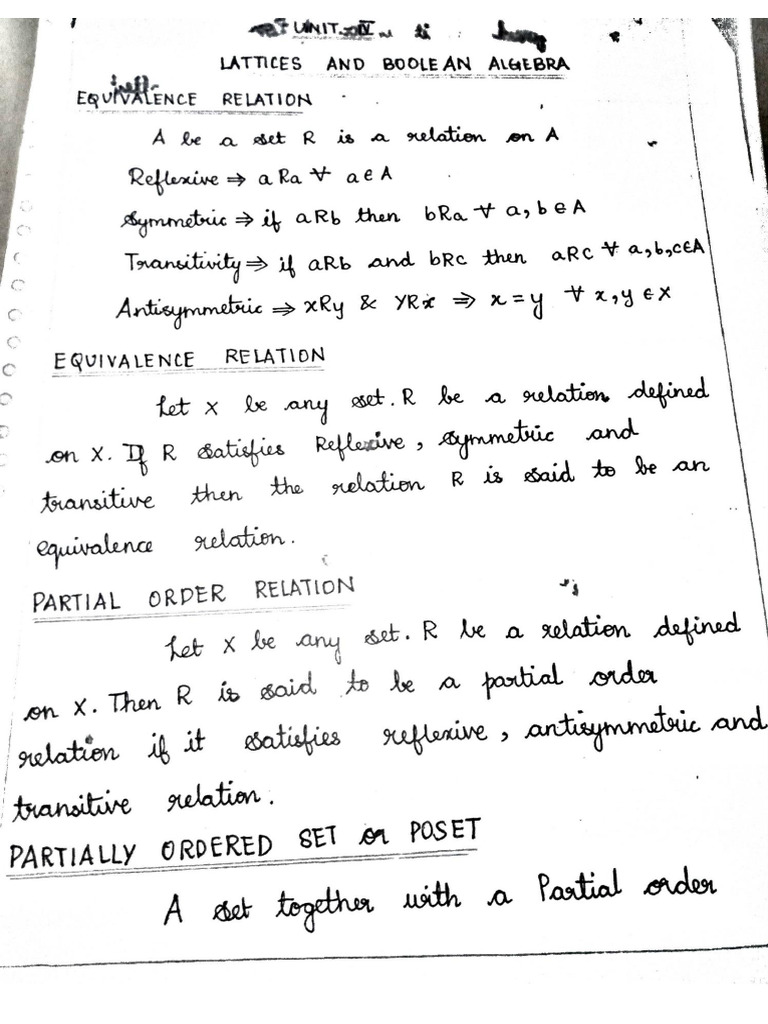 UNIT-IV
LATTICES AND BOOLEAN ALGEBRA
EQUIVALENCE RELATION
A be a set R is a relation on A
Reflexive ⇒ aRa ∀ a∈A
Symmetric ⇒ if aRb then bRa ∀ a, b ∈ A
Transitivity ⇒ if aRb and bRc then aRc ∀ a,b,c∈A
Antisymmetric ⇒ xRy & yRx ⇒ x = y ∀ x, y ∈ X
EQUIVALENCE RELATION
Let X be any set. R be a relation defined
on X. If R satisfies Reflexive, symmetric and
transitive then the relation R is said to be an
equivalence relation.
PARTIAL ORDER RELATION
Let X be any set. R be a relation defined
on X. Then R is said to be a partial order
relation if it satisfies reflexive, antisymmetric and
transitive relation.
PARTIALLY ORDERED SET or POSET
A set together with a Partial order